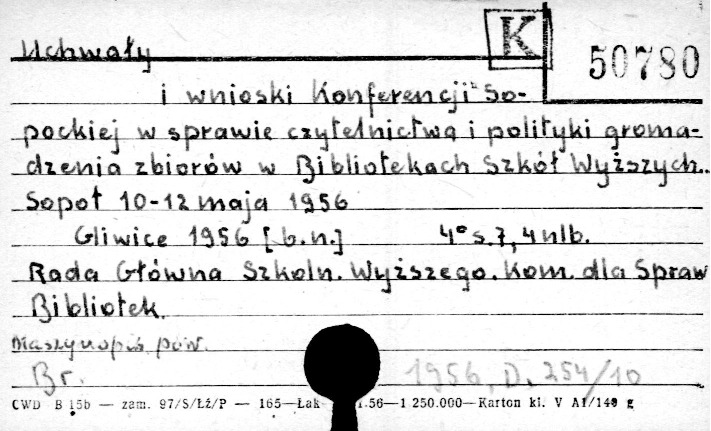 Uchwały K 50780
i wnioski Konferencji So-
pockiej w sprawie czytelnictwa i polityki groma-
dzenia zbiorów w Bibliotekach Szkół Wyższych..
Sopot 10-12 maja 1956
Gliwice 1956 [b.n.] 4° s. 7, 4 nlb.
Rada Główna Szkoln. Wyższego. Kom. dla Spraw
Bibliotek.
Maszynopis pow.
Br. 1956, D. 254/10
CWD B 15b — zam. 97/S/Łź/P — 165—Łak .56—1 250.000—Karton kl. V A1/140 g